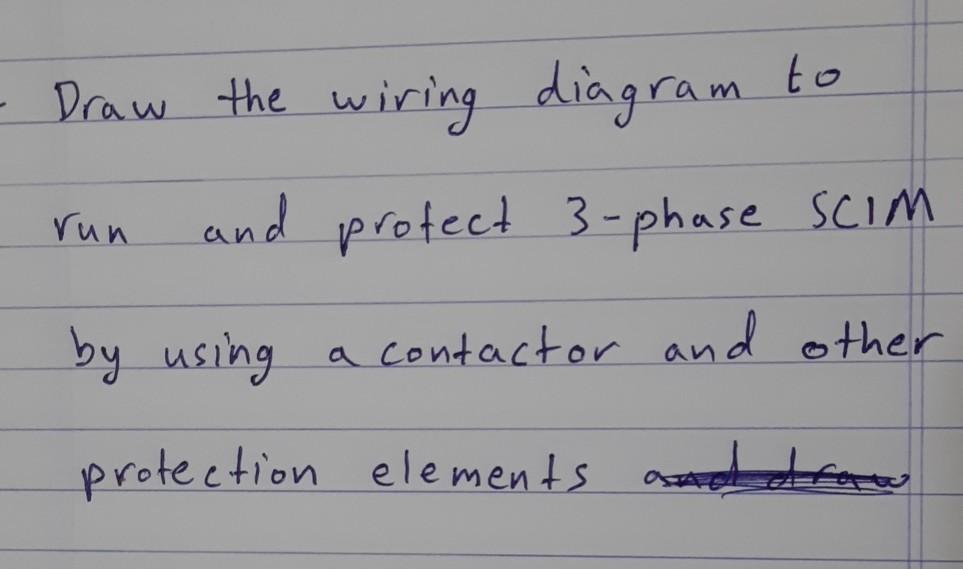 - Draw the wiring diagram to
run and protect 3-phase SCIM
by using a contactor and other
protection elements and draw